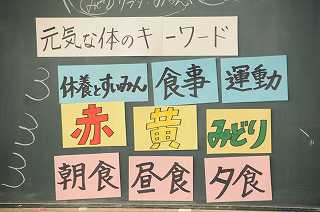 元気な体のキーワード
休養とすいみん 食事 運動
赤 黄 みどり
朝食 昼食 夕食